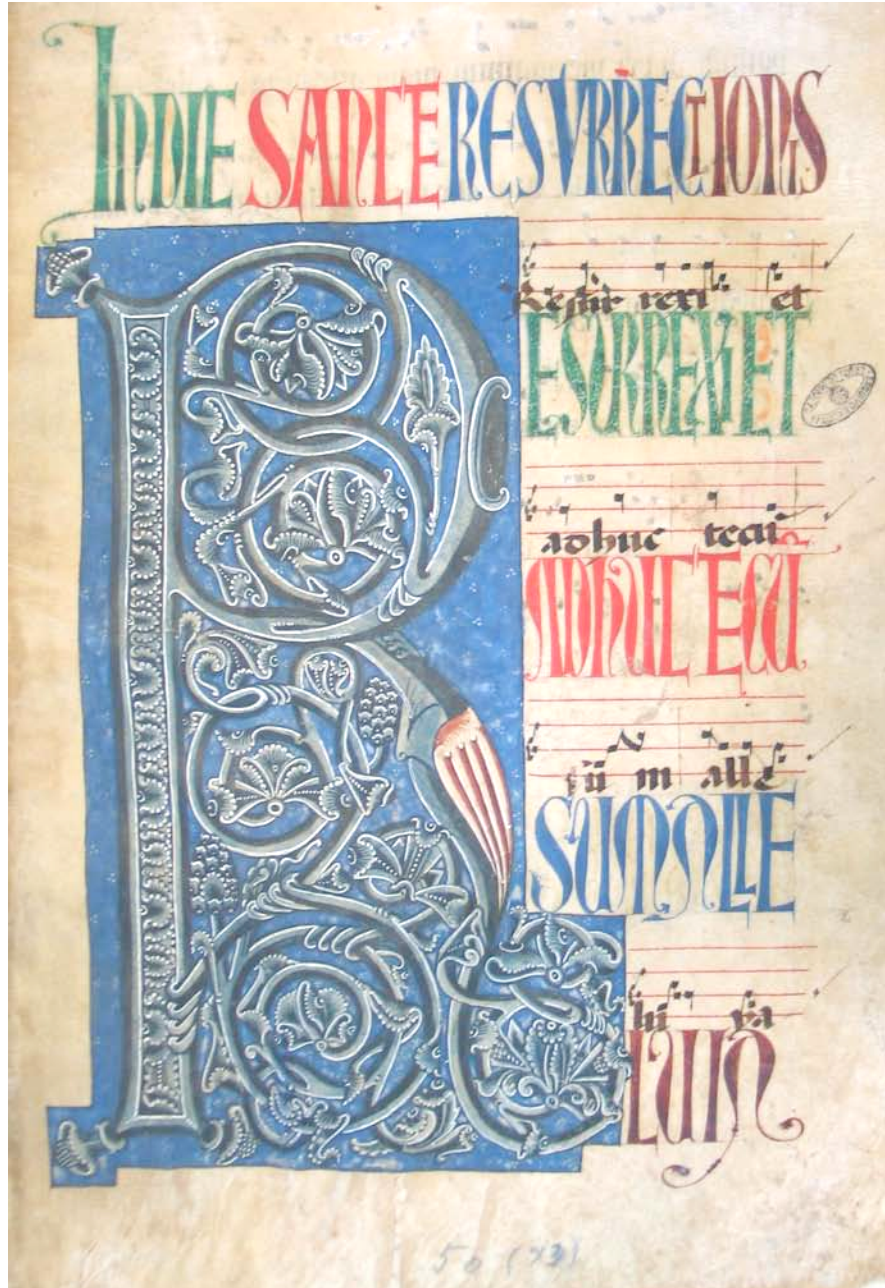 IN DIE SANCTE RESURRECTIONIS
Resur rexi et
RESURREXI ET
adhuc tecū
ADHUC TECŪ
sū m alle
SUM ALLE
lu ya
LUIA
50 (73)